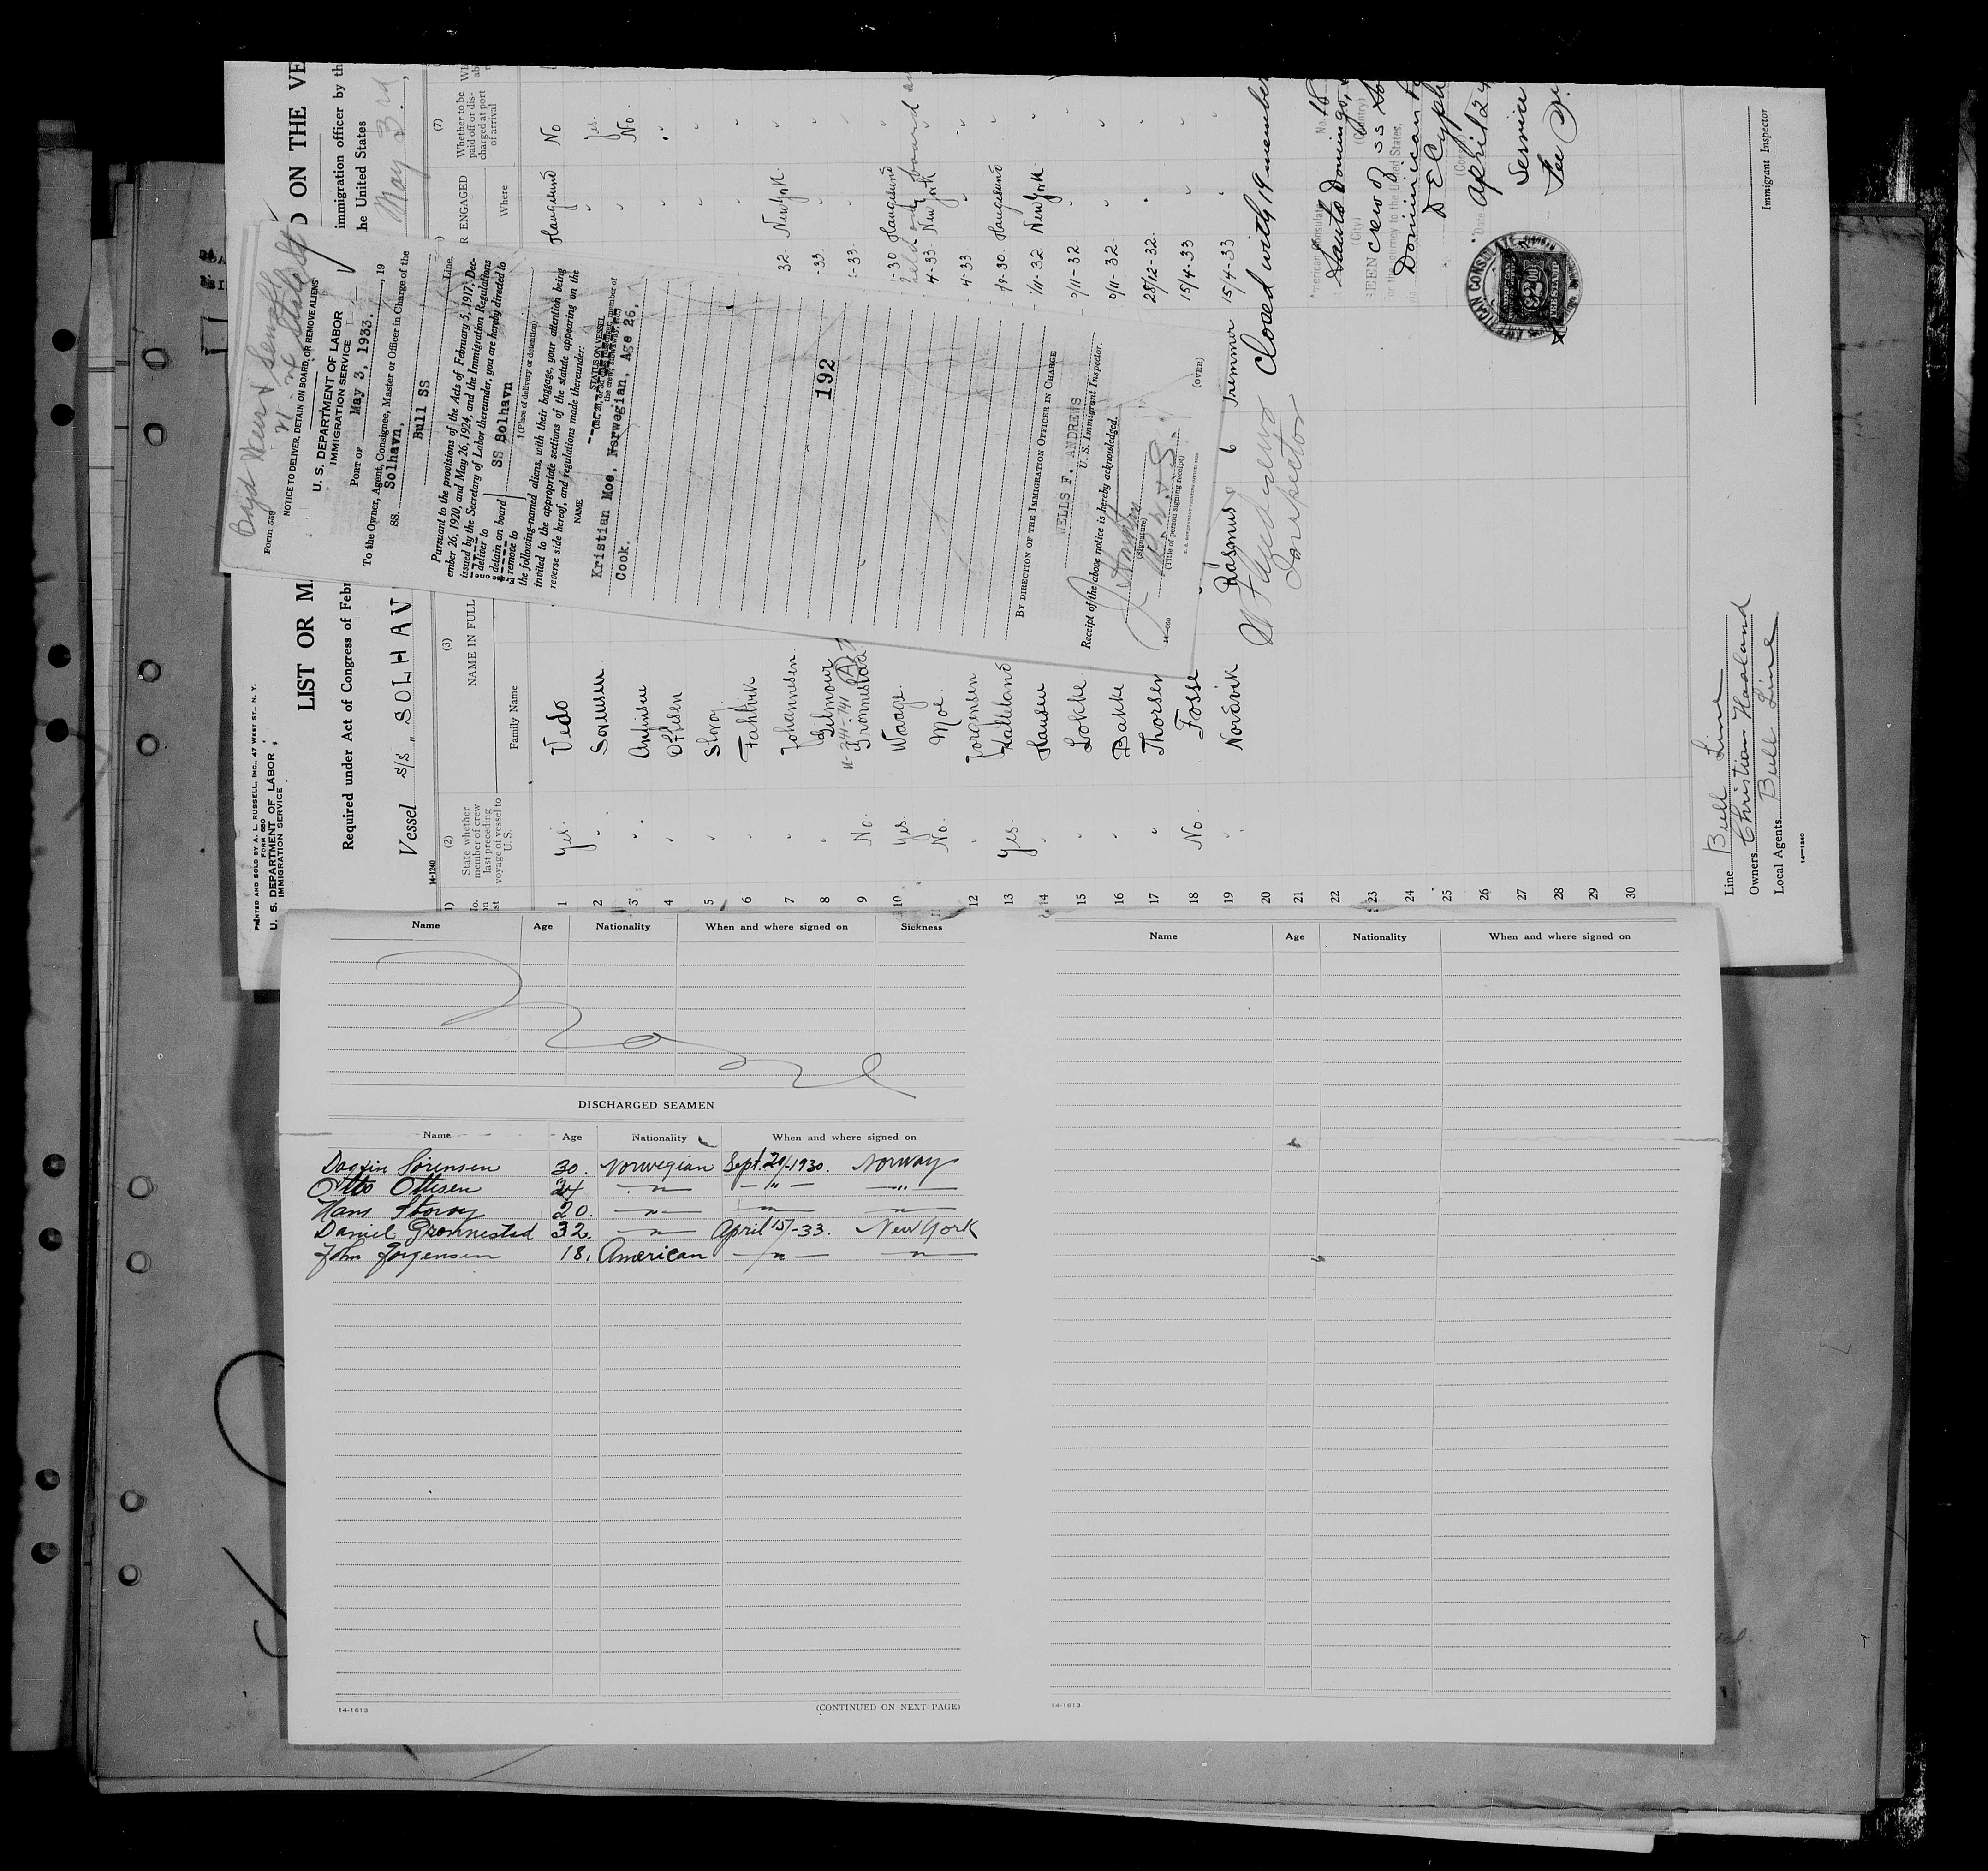 PRINTED AND SOLD BY A. L. RUSSELL, INC., 47 WEST ST., N. Y.
FORM 680
U. S. DEPARTMENT OF LABOR
IMMIGRATION SERVICE
LIST OR M
D ON THE VE
Required under Act of Congress of Febr
immigration officer by th
he United States
Vessel S/S „SOLHAV
May 3rd
14-1240
(2)
State whether
member of crew
last preceding
voyage of vessel to
U. S.
(3)
NAME IN FULL
Family Name
R ENGAGED
Where
(7)
Whether to be
paid off or dis-
charged at port
of arrival
1 Yes. Vedo Haugesund No
2 " Sorensen " Yes.
3 " " No.
4 " Ottesen "
5 " Storoy "
6 " "
7 " Johannesen 32 New York "
8 " Gilmour -33 "
9 No. Gronnestad -33 "
10 Yes. Waage -30 Haugesund "
11 No. Moe 4-33 New York "
12 " Jorgensen 4-33 "
13 Yes. Halleland 19-30 Haugesund
14 " Hansen /11-32 New York
15 " Lokke /11-32 "
16 " Bakke /11-32 "
17 " Thorsen 28/12-32 "
18 No. Fosse 15/4-33 "
19 " Nordvik Rasmus 6 Trimmer 15/4-33 "
20 Closed with 19 member
21
22
23
24
25
26
27
28
29
30
Inspector
American Consulate No. 18
Santo Domingo,
(City) (Country)
SEEN crew of SS
for the journey to the United States,
Dominican
Date April 24
Service
Fee
AMERICAN CONSULATE
FEE STAMP
Line Bull Line
Owners Christian Haaland
Local Agents Bull Line
14-1240
Immigrant Inspector
Form 559
NOTICE TO DELIVER, DETAIN ON BOARD, OR REMOVE ALIENS
U. S. DEPARTMENT OF LABOR
IMMIGRATION SERVICE
PORT OF
May 3, 1933. , 19
To the Owner, Agent, Consignee, Master or Officer in Charge of the
SS. Solhavn, Bull SS Line.
Pursuant to the provisions of the Acts of February 5, 1917, Dec-
ember 26, 1920, and May 26, 1924, and the Immigration Regulations
issued by the Secretary of Labor thereunder, you are hereby directed to
deliver to
detain on board SS Solhavn
remove to
† (Place of delivery or detention)
the following-named aliens, with their baggage, your attention being
invited to the appropriate sections of the statute appearing on the
reverse side hereof, and regulations made thereunder:
NAME STATUS ON VESSEL
Kristian Moe, Norwegian, Age 26,
Cook.
192
BY DIRECTION OF THE IMMIGRATION OFFICER IN CHARGE
WELLS F. ANDREWS
U. S. Immigrant Inspector.
Receipt of the above notice is hereby acknowledged.
(Signature)
(Title of person signing receipt)
(OVER)
Name Age Nationality When and where signed on Sickness
None
DISCHARGED SEAMEN
Name Age Nationality When and where signed on
Dagfin Sørensen 30. Norwegian Sept. 20/-1930. Norway
Otto Ottesen 24 — " — — " — — " —
Hans Storoy 20. — " — — " — — " —
Daniel Gronnestad 32. — " — April 15/-33. New York
John Jorgensen 18. American — " — — " —
14-1613
(CONTINUED ON NEXT PAGE)
Name Age Nationality When and where signed on
14-1613